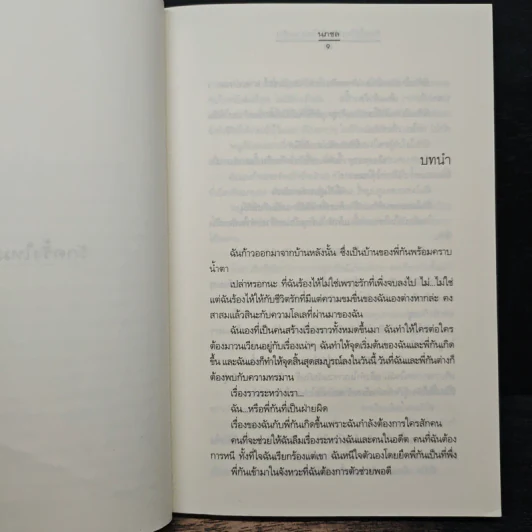 นภาชล
๕
บทนำ
ฉันก้าวออกมาจากบ้านหลังนั้น ซึ่งเป็นบ้านของพี่กันพร้อมคราบ
น้ำตา
เปล่าหรอกนะ ที่ฉันร้องไห้ไม่ใช่เพราะรักที่เพิ่งจบลงไป ไม่...ไม่ใช่
แต่ฉันร้องไห้ให้กับชีวิตรักที่มีแต่ความขมขื่นของฉันเองต่างหากล่ะ คง
สาสมแล้วสินะกับความโลเลที่ผ่านมาของฉัน
ฉันเองที่เป็นคนสร้างเรื่องราวทั้งหมดขึ้นมา ฉันทำให้ใครต่อใคร
ต้องมาวนเวียนอยู่กับเรื่องเน่าๆ ฉันทำให้จุดเริ่มต้นของฉันและพี่กันเกิด
ขึ้น และฉันเองก็ทำให้จุดสิ้นสุดสมบูรณ์ลงในวันนี้ วันที่ฉันและพี่กันต่างก็
ต้องพบกับความทรมาน
เรื่องราวระหว่างเรา...
ฉัน...หรือพี่กันที่เป็นฝ่ายผิด
เรื่องของฉันกับพี่กันเกิดขึ้นเพราะฉันกำลังต้องการใครสักคน
คนที่จะช่วยให้ฉันลืมเรื่องระหว่างฉันและคนในอดีต คนที่ฉันต้อง
การหนี ทั้งที่ใจฉันเรียกร้องแต่เขา ฉันหนีใจตัวเองโดยยึดพี่กันเป็นที่พึ่ง
พี่กันเข้ามาในจังหวะที่ฉันต้องการตัวช่วยพอดี